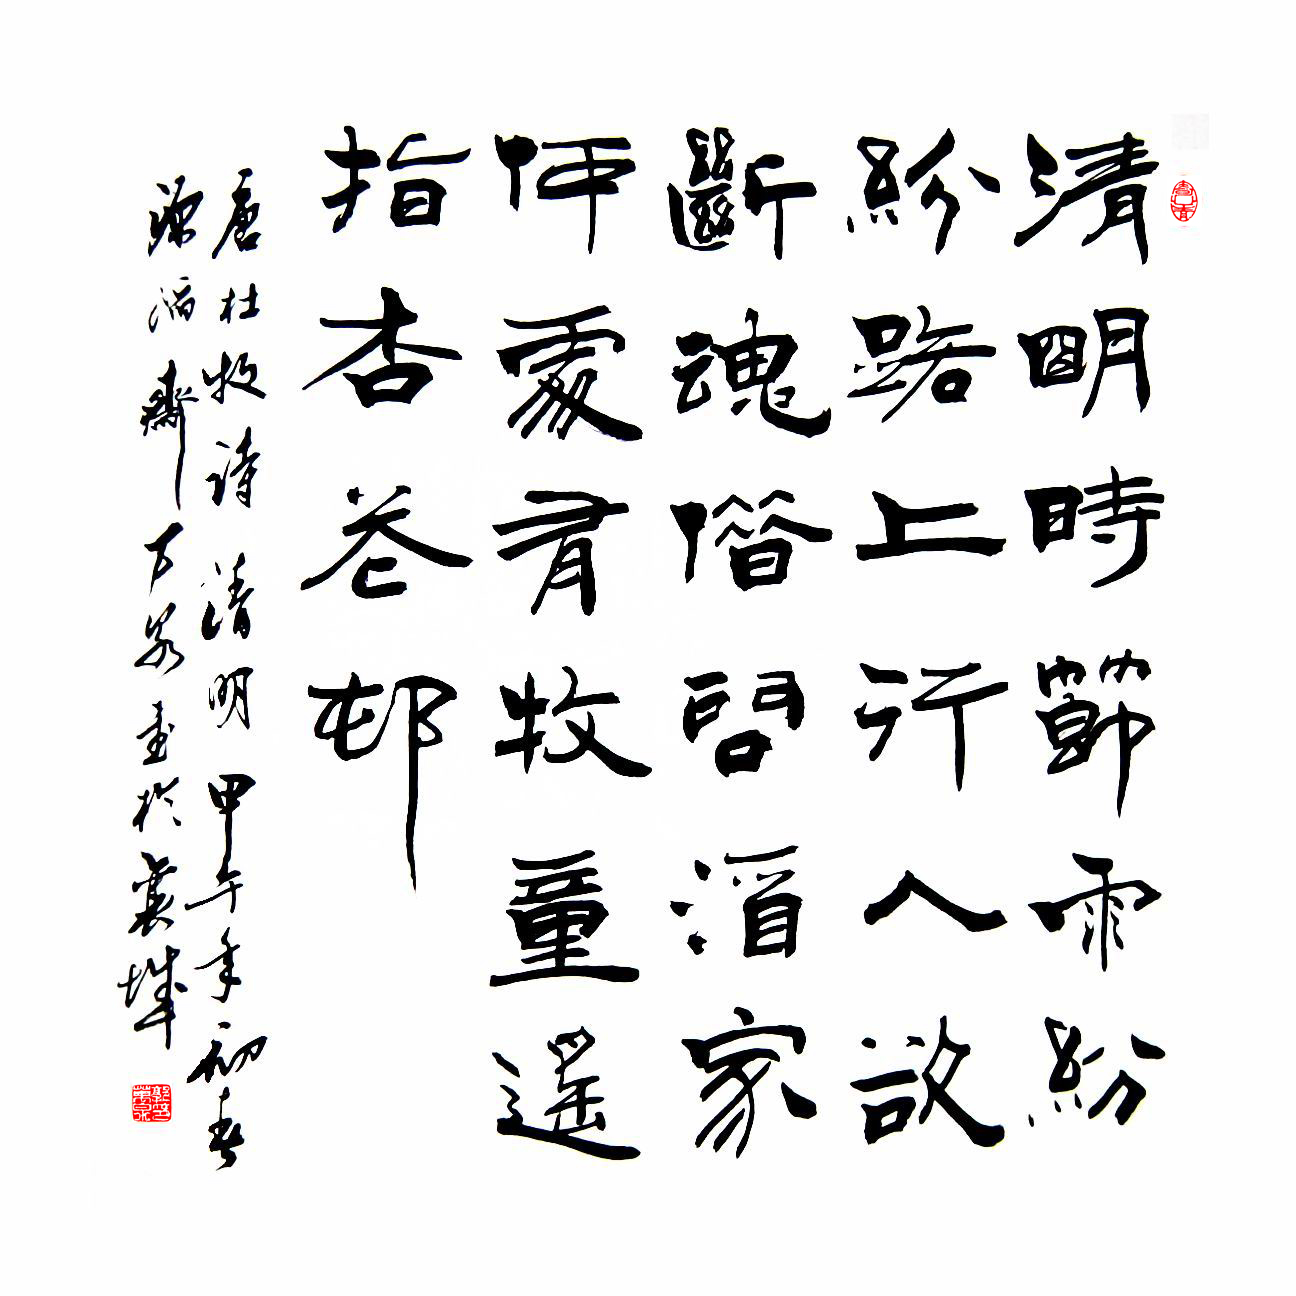 清明時節雨紛
紛路上行人欲
斷魂借問酒家
何處有牧童遙
指杏花邨
唐杜牧詩清明甲午年初春
齋万泉書於襄城